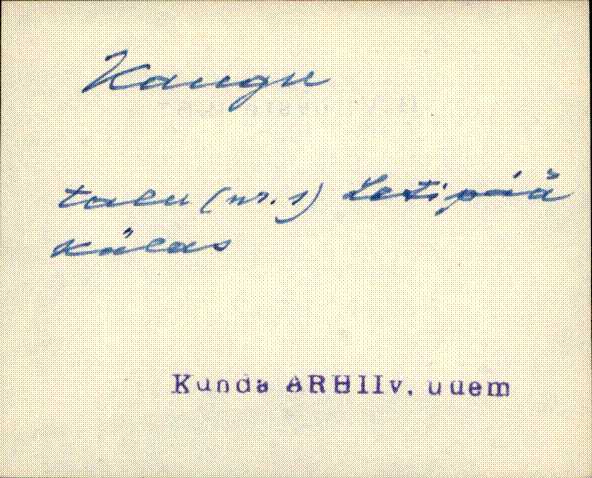 Kangu
talu (nr. 1) Letipää
külas
Kunda ARHIIv, uuem